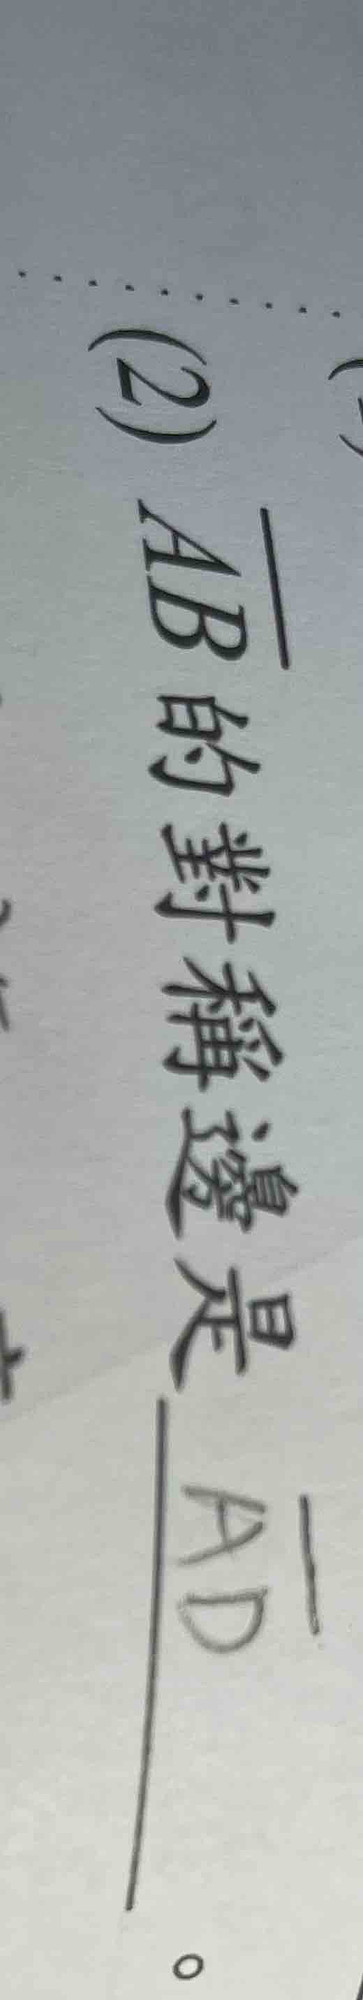 (2) A̅B̅的對稱邊是 A̅D̅ 。